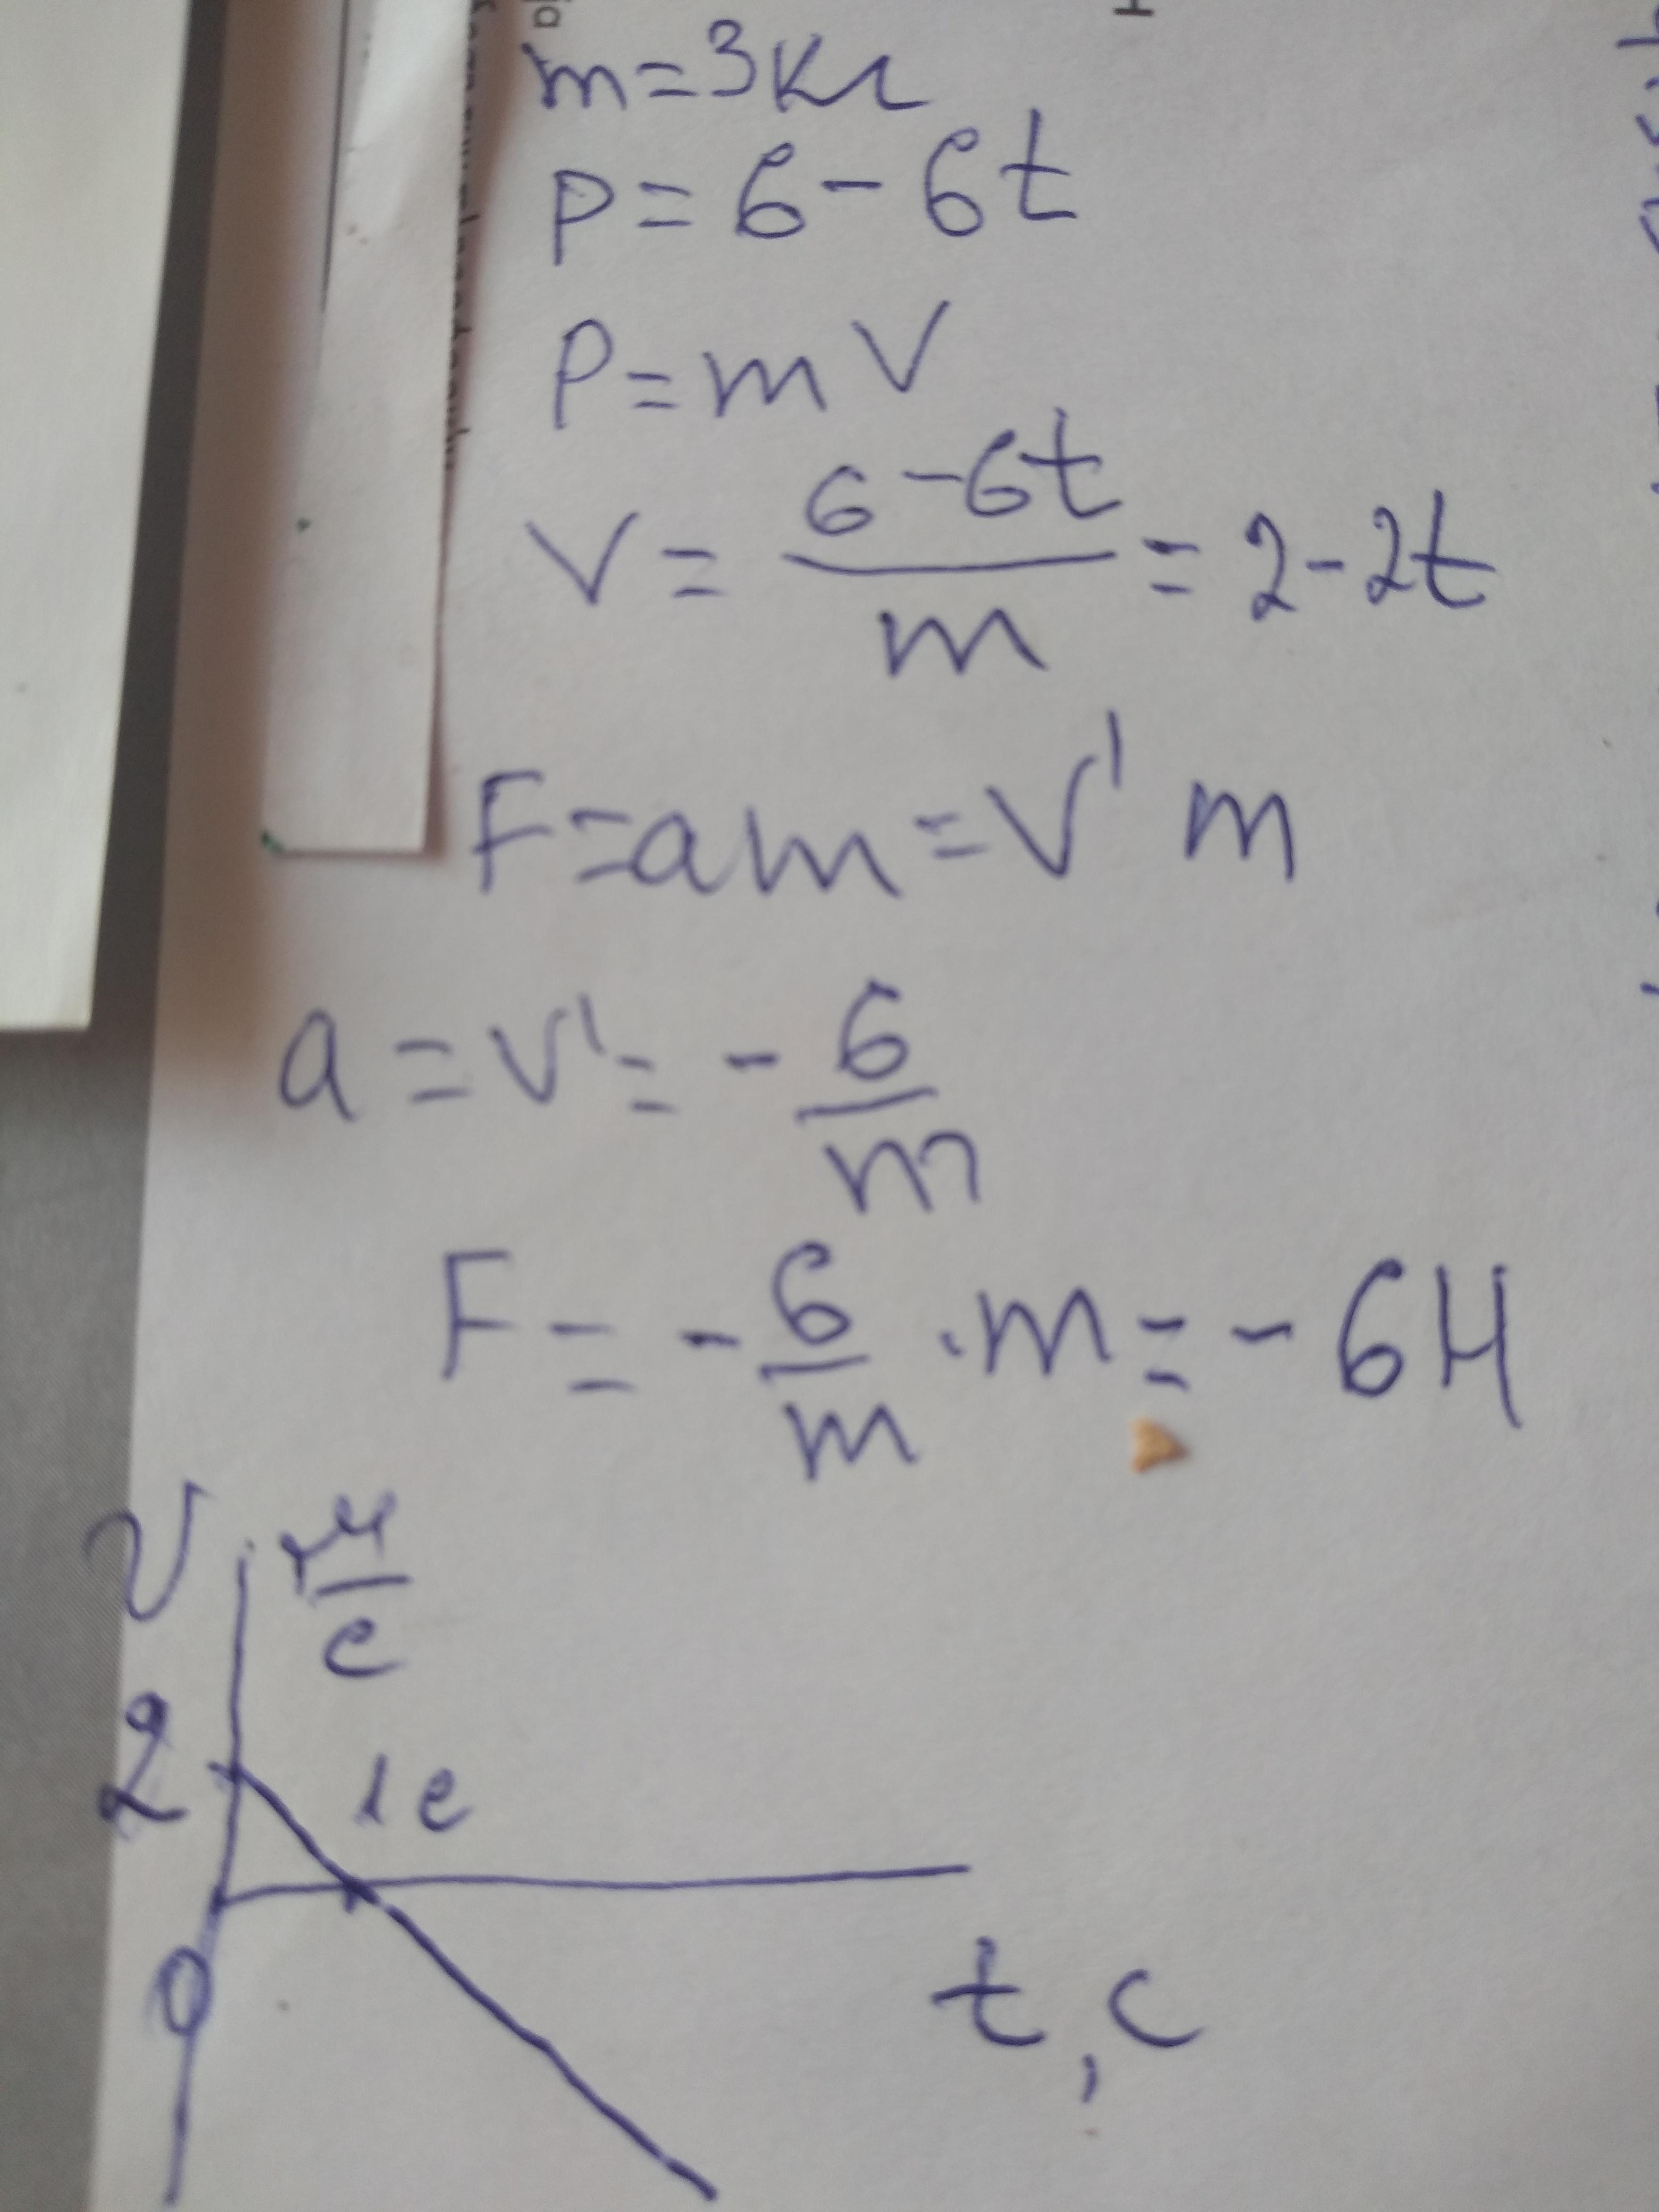 m=3кг
P=6-6t
P=mV
V=\frac{6-6t}{m}=2-2t
F=am=V'm
a=V'=-\frac{6}{m}
F=-\frac{6}{m}·m=-6H
V м/с
2 1c
0
t,c